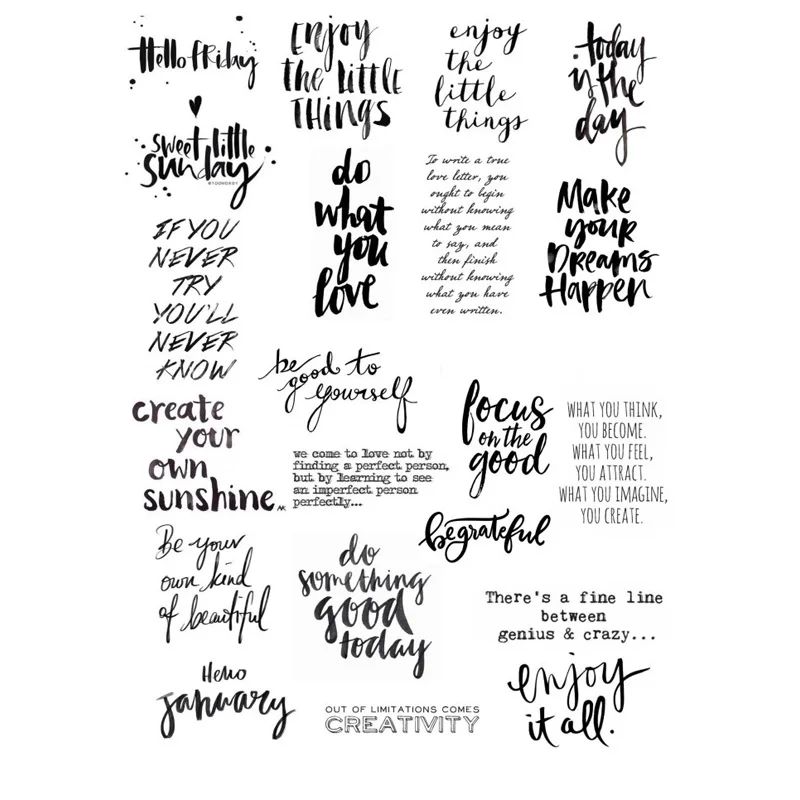 Hello friday
Enjoy
the little
things
enjoy
the
little
things
today
is the
day
sweet little
sunday
do
what
you
love
To write a true
love letter, you
ought to begin
without knowing
what you mean
to say, and
then finish
without knowing
what you have
even written.
Make
your
Dreams
Happen
IF YOU
NEVER
TRY
YOU'LL
NEVER
KNOW
be
good to
yourself
create
your
own
sunshine.
we come to love not by
finding a perfect person,
but by learning to see
an imperfect person
perfectly...
focus
on the
good
WHAT YOU THINK,
YOU BECOME.
WHAT YOU FEEL,
YOU ATTRACT.
WHAT YOU IMAGINE,
YOU CREATE.
be grateful
Be your
own kind
of beautiful
do
something
good
today
There's a fine line
between
genius & crazy...
Hello
january
OUT OF LIMITATIONS COMES
CREATIVITY
enjoy
it all.